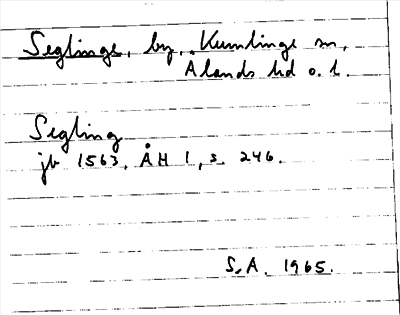 Seglinge, by, Kumlinge sn,
Ålands hd o. l.
Segling
jb 1563, ÅH 1, s. 246.
S.A. 1965.